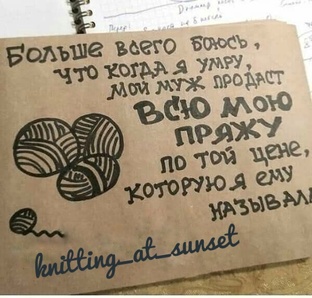 Больше всего боюсь,
что когда я умру,
мой муж продаст
ВСЮ МОЮ
ПРЯЖУ
по той цене,
которую я ему
называл
knitting_at_sunset